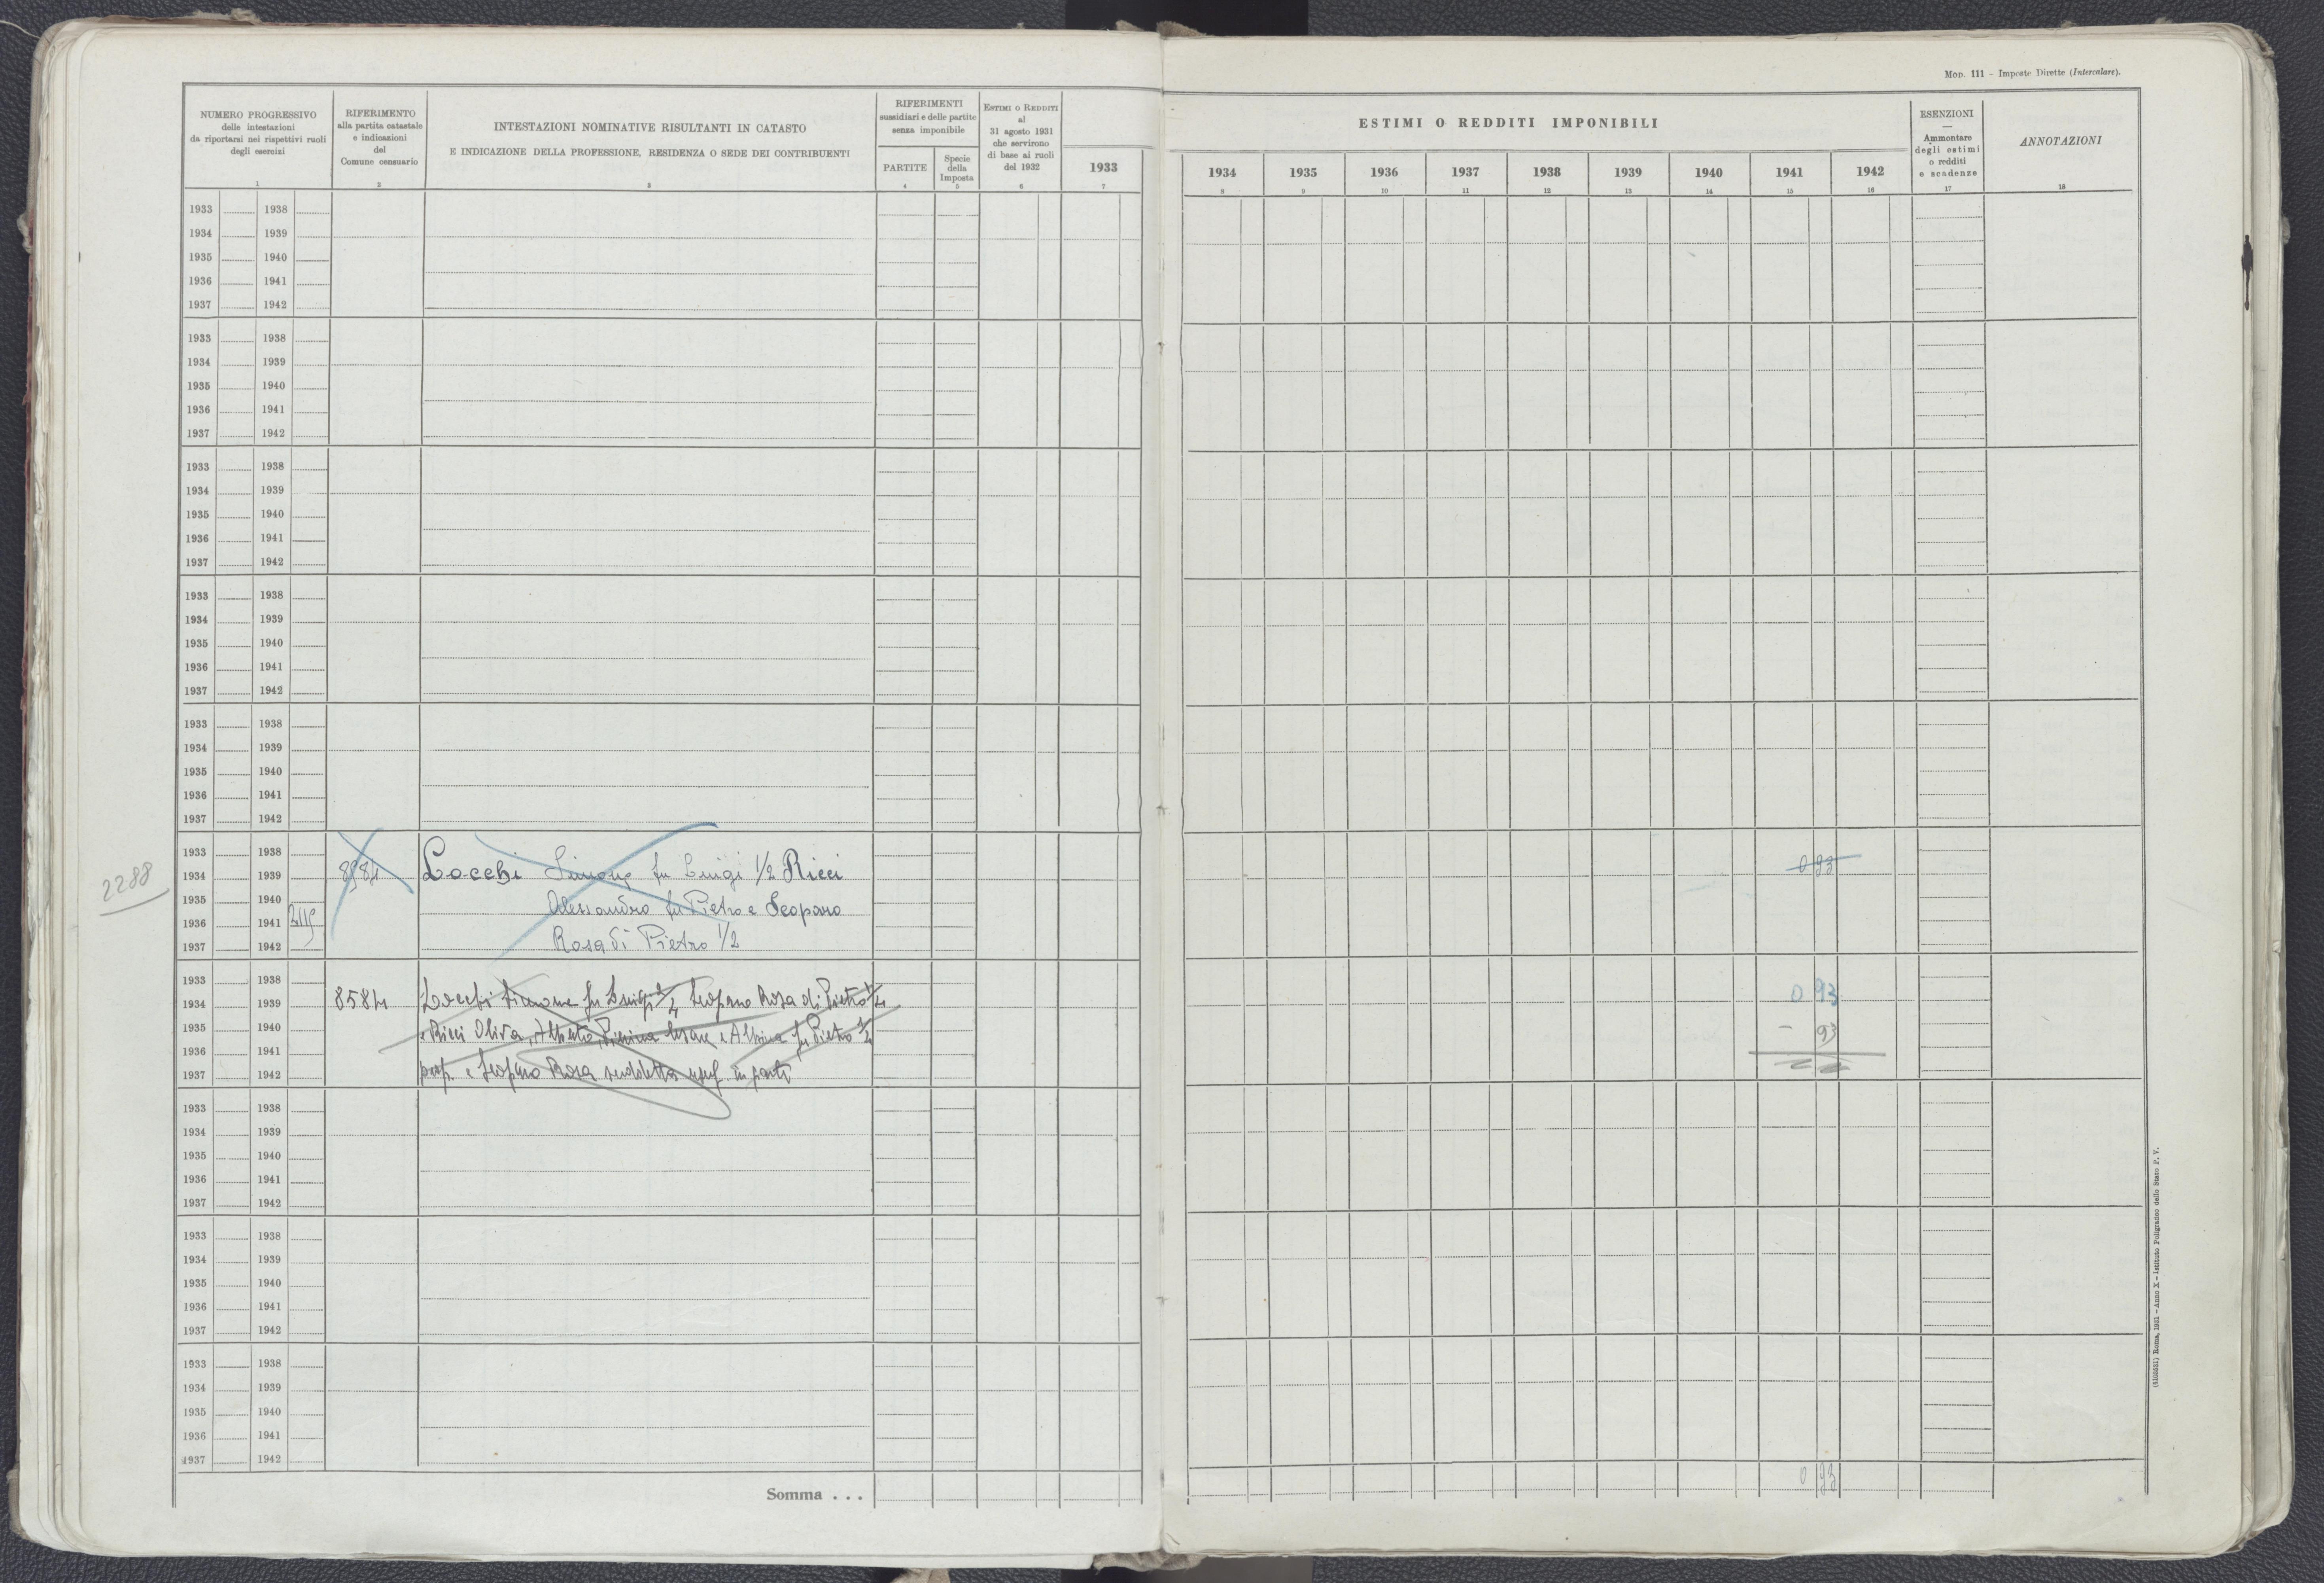 Mod. 111 - Imposte Dirette (Intercalare).
NUMERO PROGRESSIVO
delle intestazioni
da riportarsi nei rispettivi ruoli
degli esercizi
1
RIFERIMENTO
alla partita catastale
e indicazioni
del
Comune censuario
2
INTESTAZIONI NOMINATIVE RISULTANTI IN CATASTO
E INDICAZIONE DELLA PROFESSIONE, RESIDENZA O SEDE DEI CONTRIBUENTI
3
RIFERIMENTI
sussidiari e delle partite
senza imponibile
PARTITE
4
Specie
della
Imposta
5
Estimi o Redditi
al
31 agosto 1931
che servirono
di base ai ruoli
del 1932
6
1933
7
ESTIMI O REDDITI IMPONIBILI
1934 1935 1936 1937 1938 1939 1940 1941 1942
8 9 10 11 12 13 14 15 16
ESENZIONI
—
Ammontare
degli estimi
o redditi
e scadenze
17
ANNOTAZIONI
18
1933 1938
1934 1939
1935 1940
1936 1941
1937 1942
1933 1938
1934 1939
1935 1940
1936 1941
1937 1942
1933 1938
1934 1939
1935 1940
1936 1941
1937 1942
1933 1938
1934 1939
1935 1940
1936 1941
1937 1942
1933 1938
1934 1939
1935 1940
1936 1941
1937 1942
2288
1933 1938
1934 1939 Locchi Simone fu Luigi 1/2 Ricci 0 93
1935 1940 Alessandro fu Pietro e Leoparo
1936 1941
1937 1942 Rosa di Pietro 1/2
1933 1938
1934 1939 8584 Locchi Simone fu Luigi Rosa di Pietro 0 93
1935 1940 e Ricci Oliva, Alberto, e Albina fu Pietro - 93
1936 1941
1937 1942 prop. e Rosa suddetta usuf. in parte
1933 1938
1934 1939
1935 1940
1936 1941
1937 1942
1933 1938
1934 1939
1935 1940
1936 1941
1937 1942
1933 1938
1934 1939
1935 1940
1936 1941
1937 1942
Somma . . . 0 93
(4105031) Roma, 1931 - Anno X - Istituto Poligrafico dello Stato P. V.